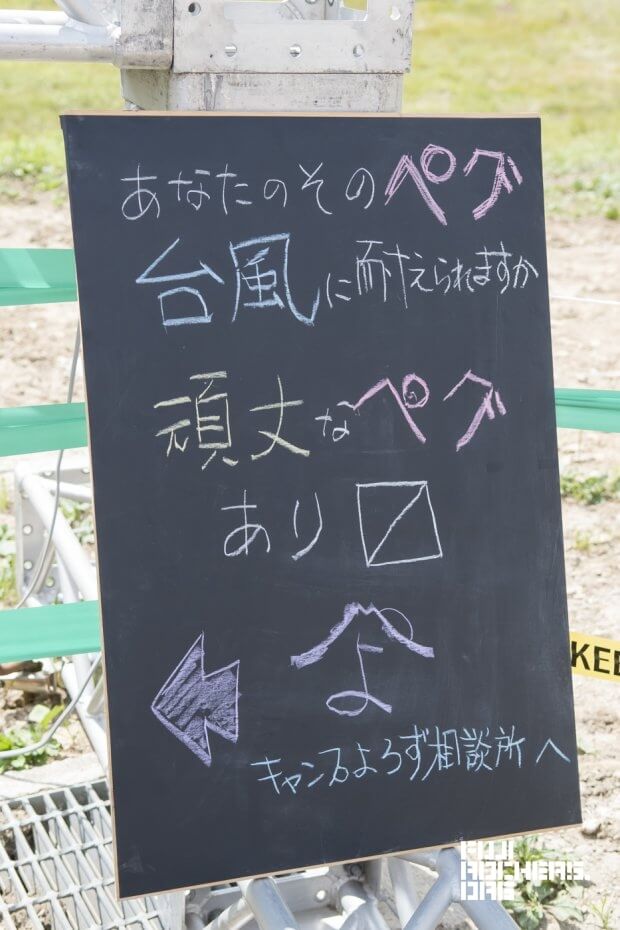 あなたのそのペグ
台風に耐えられますか
頑丈なペグ
あり〼
よ
キャンプよろず相談所へ
KEE
FUJI
ROCKERS.
ORG